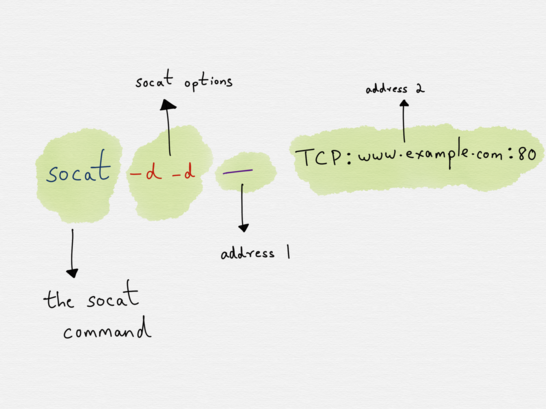 socat options
address 2
socat -d -d — TCP:www.example.com:80
address 1
the socat
command